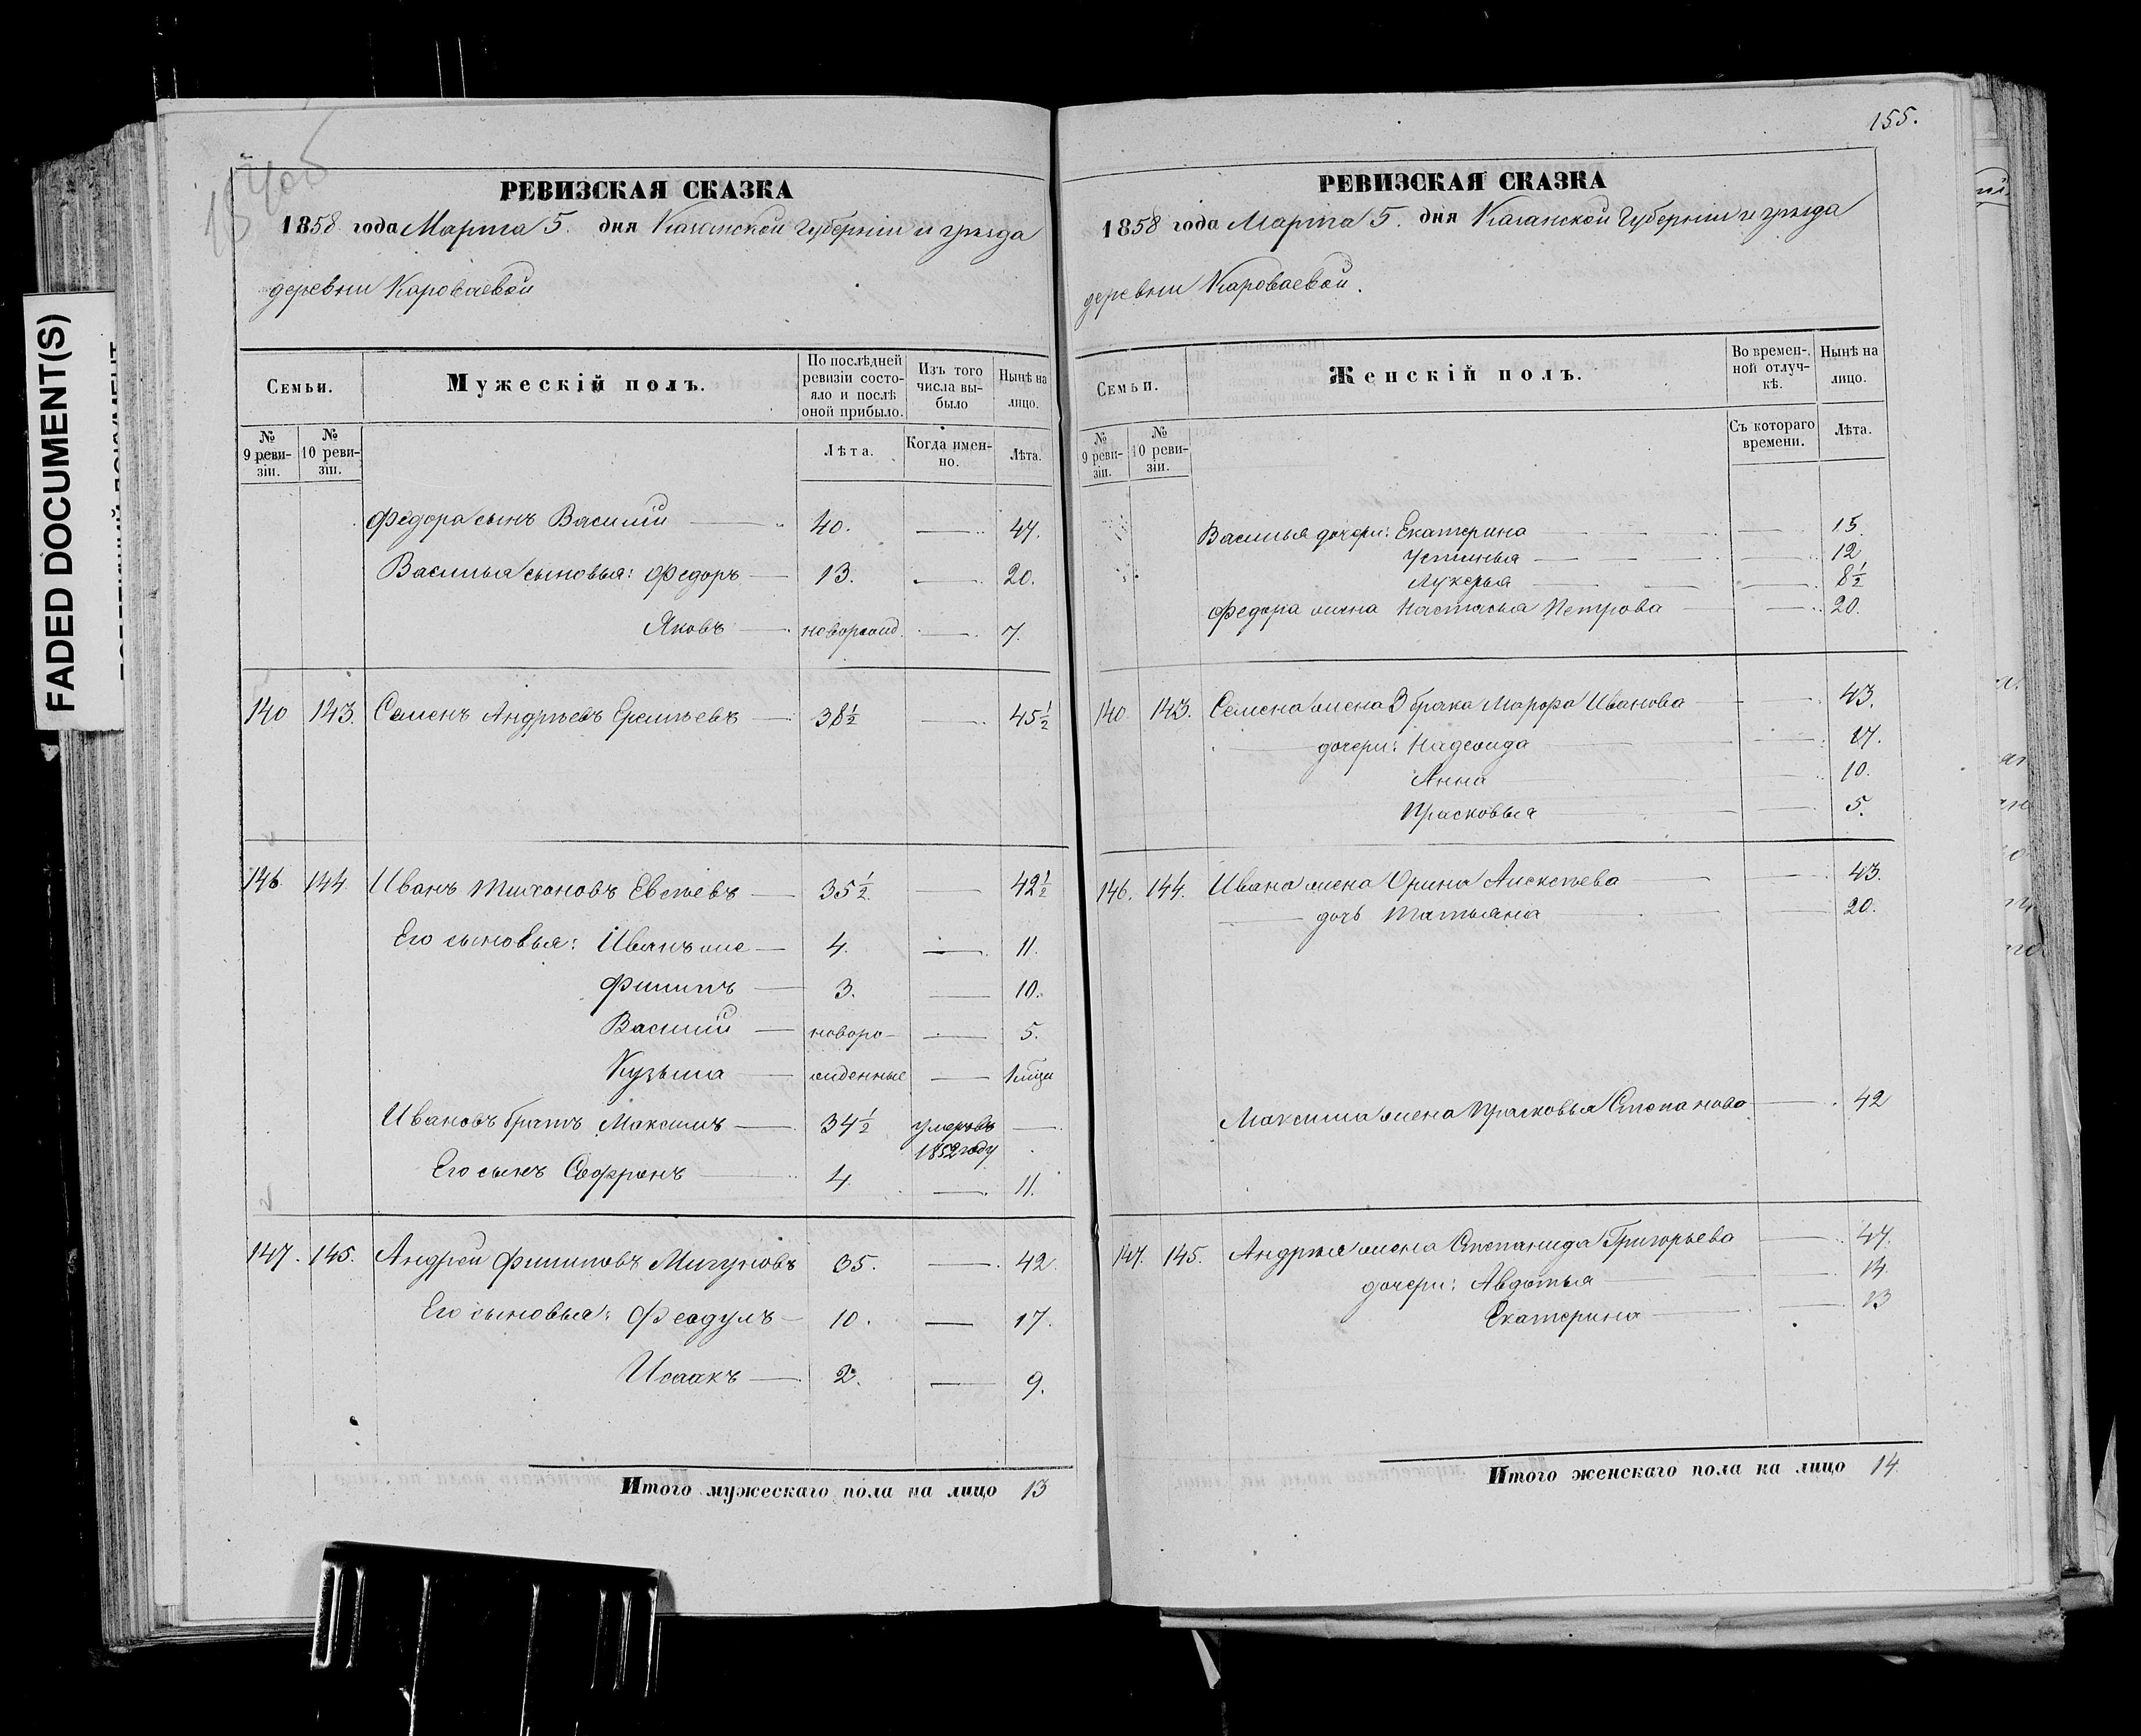 FADED DOCUMENT(S)
РЕВИЗСКАЯ СКАЗКА
1858 года Марта 5. дня Казанской Губерніи и уѣзда
деревни Кароваевой
Семьи.
Мужескій полъ.
По послѣдней ревизіи состояло и послѣ оной прибыло.
Изъ того числа выбыло
Нынѣ на лицо.
№ 9 ревизіи.
№ 10 ревизіи.
Лѣта.
Когда именно.
Лѣта.
Федора сынъ Василій 40. 47.
Василья сыновья: Федоръ 13. 20.
Яковъ новорожд. 7.
140 143. Семенъ Андреевъ Еремѣевъ 38½ 45½
146 144 Иванъ Тихоновъ Евсѣевъ 35½ 42½
Его сыновья: Иванъ же 4. 11.
Филипъ 3. 10.
Василій новоро- 5.
Кузьма жденные
Ивановъ братъ Максимъ 34½ умеръ въ
1852 году
Его сынъ Софронъ 4 11.
147. 145. Андрей Филиповъ Мигуновъ 35. 42.
Его сыновья: Феодулъ 10. 17.
Исаакъ 2. 9.
Итого мужескаго пола на лицо 13
155.
РЕВИЗСКАЯ СКАЗКА
1858 года Марта 5. дня Казанской Губерніи и уѣзда
деревни Кароваевой.
Семьи.
Женскій полъ.
Во временной отлучкѣ.
Нынѣ на лицо.
№ 9 ревизіи.
№ 10 ревизіи.
Съ котораго времени.
Лѣта.
Василья дочери: Екатерина 15
Устинья 12
Лукерья 8½
Федора жена Настасья Петрова 20.
140 143. Семена жена 3 брака Марфа Иванова 43.
дочери: Надежда 17.
Анна 10.
Прасковья 5.
146. 144. Ивана жена Орина Алексѣева 43.
дочь Татьяна 20.
Максима жена Прасковья Степанова 42
147. 145. Андрея жена Степанида Григорьева 47.
дочери: Авдотья 14.
Екатерина 13
Итого женскаго пола на лицо 14